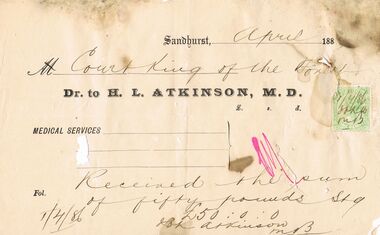 Sandhurst, April 188
M Court King of the Forest
Dr. to H. L. ATKINSON, M. D.
£. s. d.
MEDICAL SERVICES
Received the sum
Fol. of fifty pounds Stg
1/4/86 £50:0:0
Atkinson
MB
1/4/86
MB